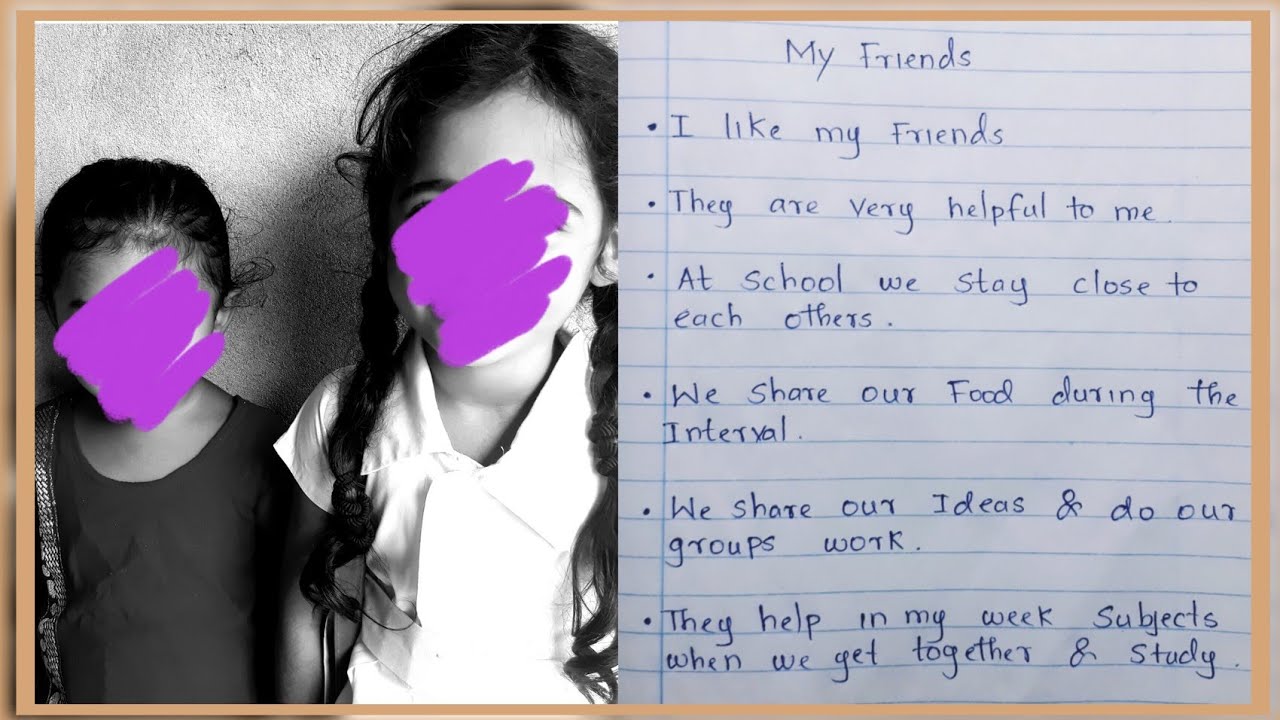 My Friends
• I like my Friends
• They are very helpful to me.
• At school we stay close to
each others.
• We share our Food during the
Interval.
• We share our Ideas & do our
groups work.
• They help in my week Subjects
when we get together & study.